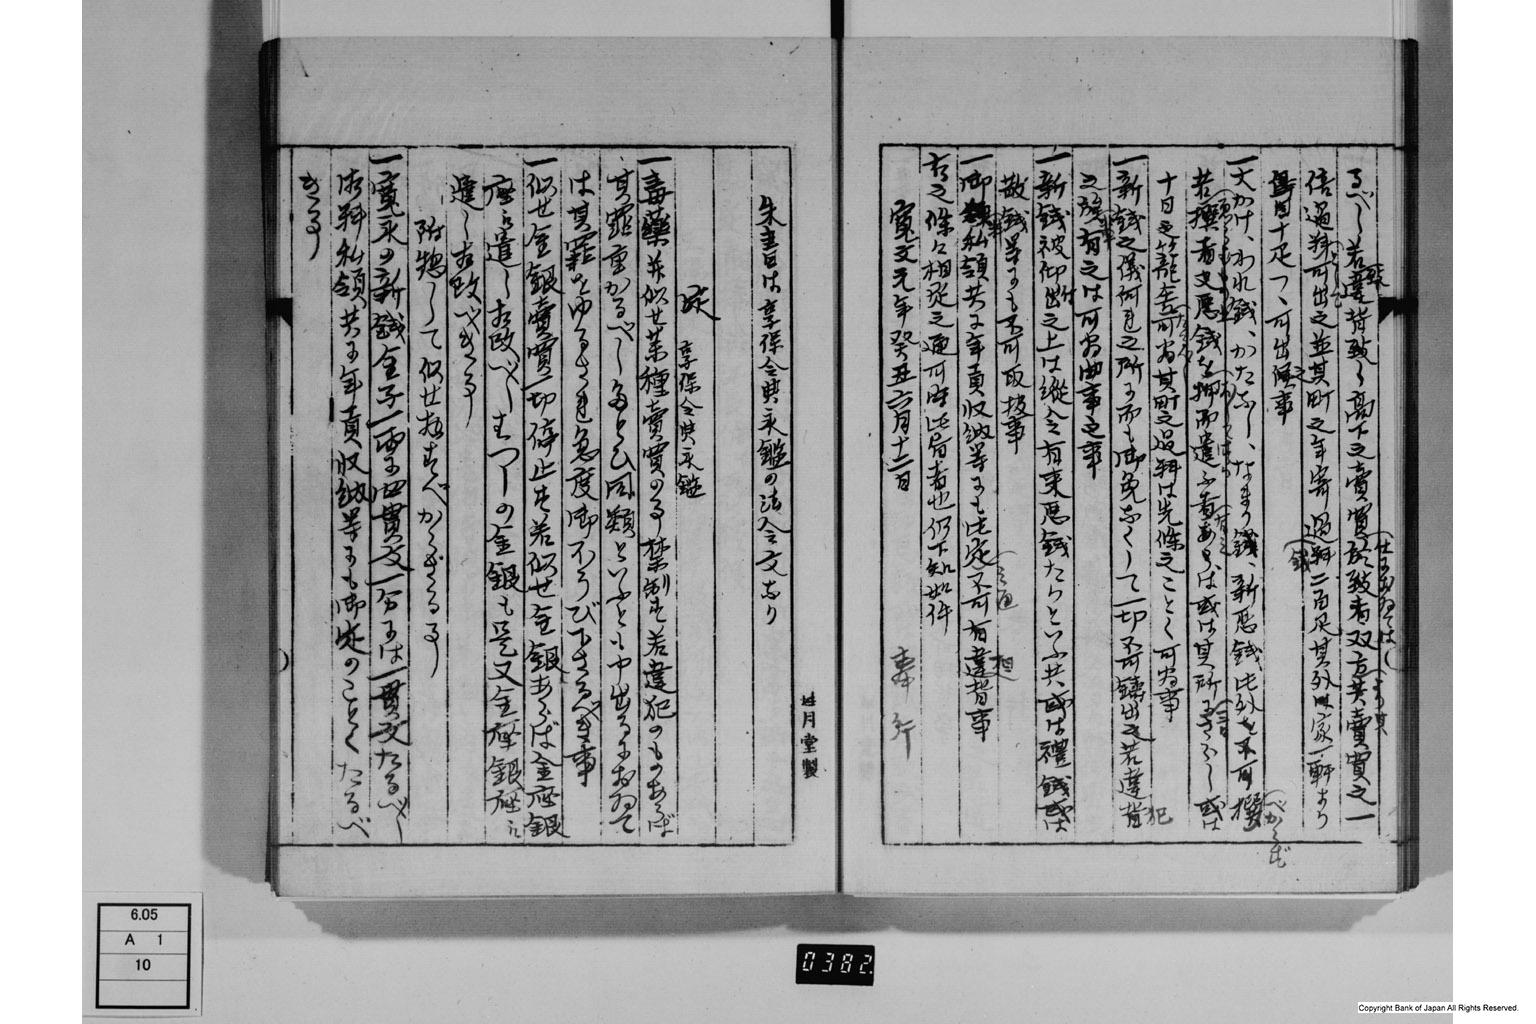 るべし若違背致し高下之賣買於致者双方共賣買之一
倍過料可出之並其町之年寄過料二百疋其外一家一軒より
十疋つゝ可出之候事
一大かけ、われ錢、かたなし、なまり錢、新惡錢此外を不可撰
若撰者又惡錢を押而遣ふ者あらは或は其所にさらし或は
十日之籠舍可為其町之過料は先條之ことく可為事
一新錢之儀何れ之所に而も御免なくして一切不可鑄出之若違背
之族有之は可為曲事之事
一新錢被仰出之上は縱令有来惡錢たりといふ共或は禮錢或は
散錢等にも不可取扱事
一御領私領共に年貢収納等にも此定不可有違背事
右之條々相定之通可時此旨者也仍下知如件
寛文元年癸丑六月十二日
奉行
甘月堂製
朱書は享保令典永鑑の法令文なり
定
享保令典永鑑
一毒藥並似せ薬種賣買の事禁制す若違犯のものあらば
其罪重かるべしたとひ同類といふとも申出るにおゐて
は其罪をゆるされ急度御ほうび下さるべき事
一似せ金銀賣買一切停止す若似せ金銀あらば金座銀
座え遣し相改べしはつしの金銀も是又金座銀座え
遣し相改べき事
附惣して似せ物すべからざる事
一寛永の新錢金子一兩に四貫文一分には一貫文たるべし
御料私領共に年貢収納等にも御定のことくたるべ
き事
6.05
A 1
10
0382.
Copyright Bank of Japan All Rights Reserved.